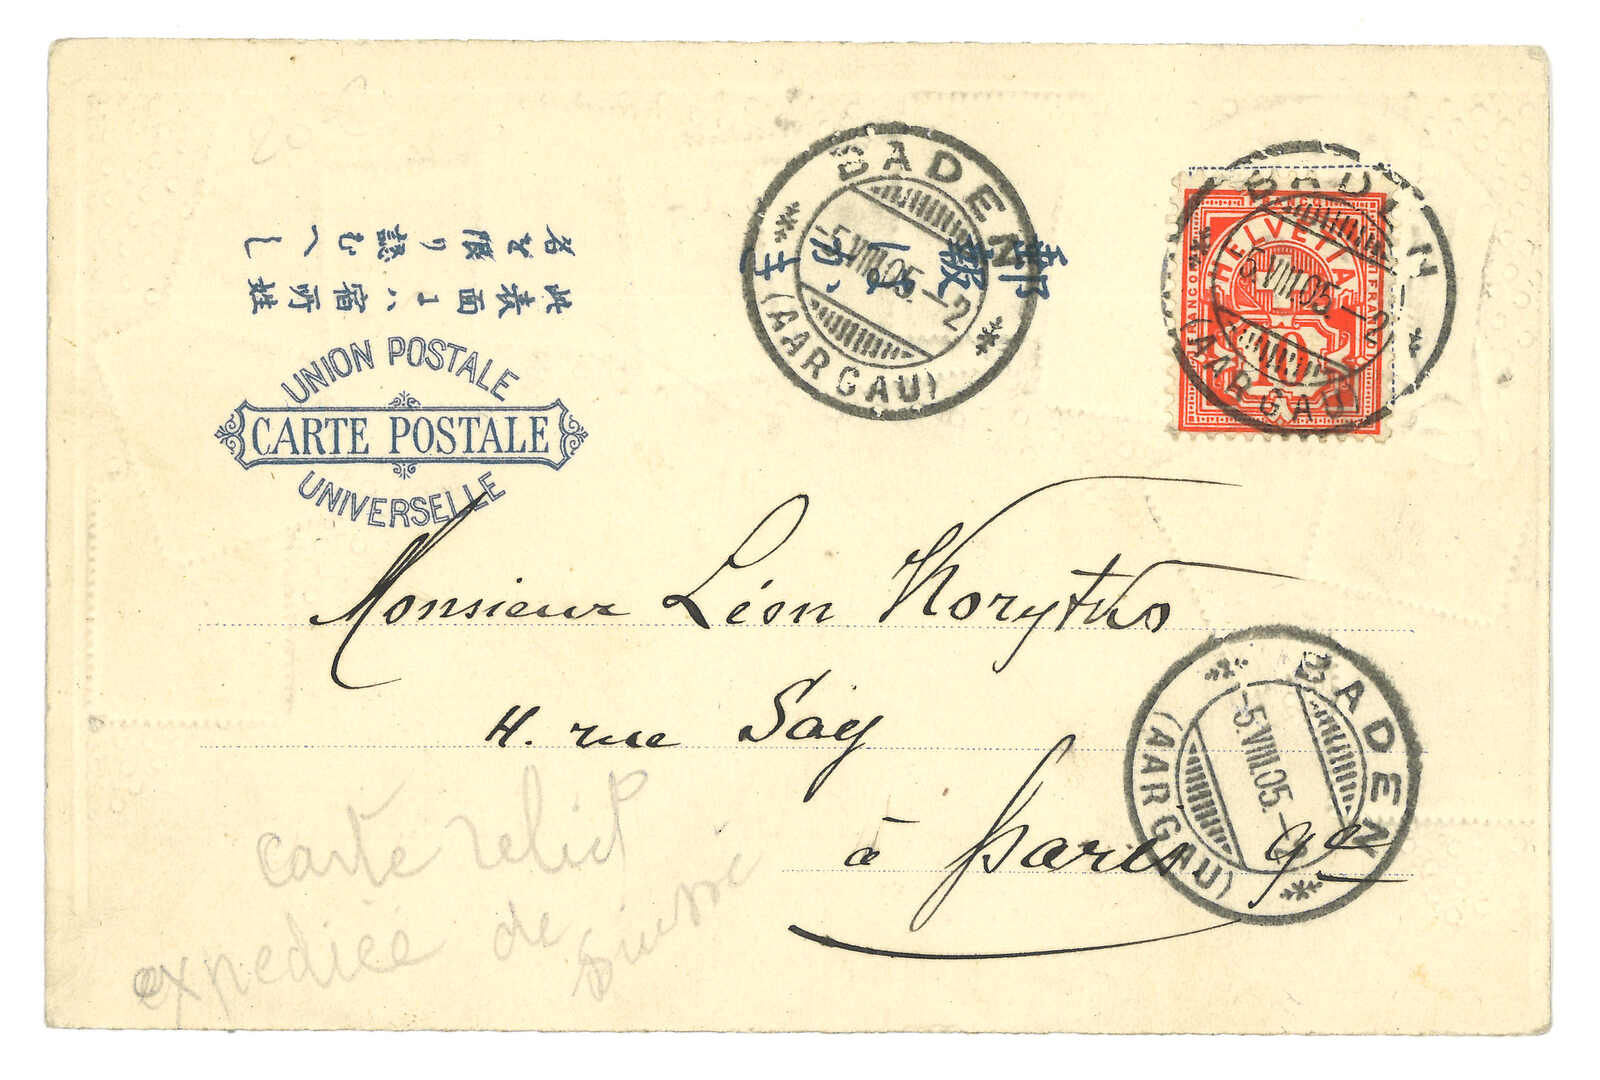 郵報はがき
此表面ニハ宿所姓
名を限り認むへし
UNION POSTALE
CARTE POSTALE
UNIVERSELLE
BADEN
5.VIII.05.-2
(AARGAU)
HELVETIA
FRANCO
FRANCO
10
BADEN
5.VIII.05.-2
(AARGAU)
Monsieur Léon Korytko
4. rue Say
à Paris 9e
BADEN
-5.VIII.05.-
(AARGAU)
carte relief
expediée de suisse